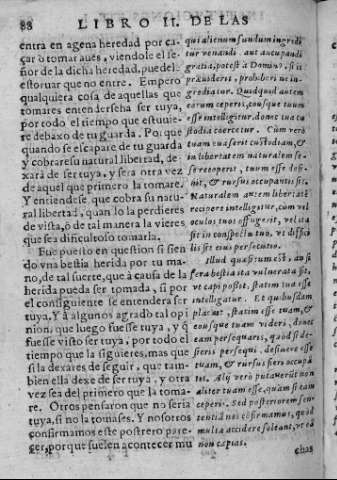 88 LIBRO II. DE LAS
entra en agena heredad por ca-
çar ò tomar aues, viendole el se-
ñor de la dicha heredad, puedel
estoruar que no entre. Empero
qualquiera cosa, de aquellas que
tomares entenderseha ser tuya,
por todo el tiempo que estuuie-
re debaxo de tu guarda. Porque
quando se escapare de tu guarda
y cobrare su natural libertad, de-
xarà de ser tuya, y sera otra vez
de aquel que primero la tomare.
Y entiendese que cobra su natu-
ral libertad, quan lo la perdieres
de vista, ò de tal manera la vieres
que sea dificultoso tomarla.
Fue puesto en question si sien
do vna bestia herida por tu ma-
no, de tal suerte, que à causa de la
herida pueda ser tomada, si por
el consiguiente se entendera ser
tuya, Y à algunos agradò tal opi
nion, que luego fuesse tuya, y q̃
fuesse visto ser tuya, por todo el
tiempo que la siguieres, mas que
si la dexares de seguir, que tam-
bien ella dexe de ser tuya, y otra
vez sea del primero que la toma-
re. Otros pensaron que no seria
tuya, si no la tomases. Y nosotros
confirmamos este postrero pare-
cer, porque suelen acontecer mu
qui alienum fundum ingredi
tur venandi aut aucupandi
gratia, potest à Domino, si is
præuiderit, prohiberi ne in-
grediatur. Quidquid autem
eorum ceperis, eousque tuum
esse intelligitur, donec tua cu
stodia coercetur. Cùm verò
tuam euaserit custodiam, &
in libertatem naturalem se-
se receperit, tuum esse desi-
nit, & rursus occupantis fit.
Naturalem autem libertatem
recipere intelligitur, cum vel
oculos tuos effugerit, vel ita
sit in conspectu tuo, vt diffici
lis sit eius persecutio.
Illud quæsitum est, an si
fera bestia ita vulnerata sit,
vt capi possit, statim tua esse
intelligatur. Et quibusdam
placuit, statim esse tuam, &
eousque tuam videri, donec
eam persequaris, quòd si de-
sieris persequi, desinere esse
tuam, & rursus fieri occupā
tis. Alij verò putauerūt non
aliter tuam esse, quàm si eam
ceperis. Sed posteriorem sen-
tentiā nos cōfirmamus, quod
multa accidere soleant, vt eā
non capias.
chas